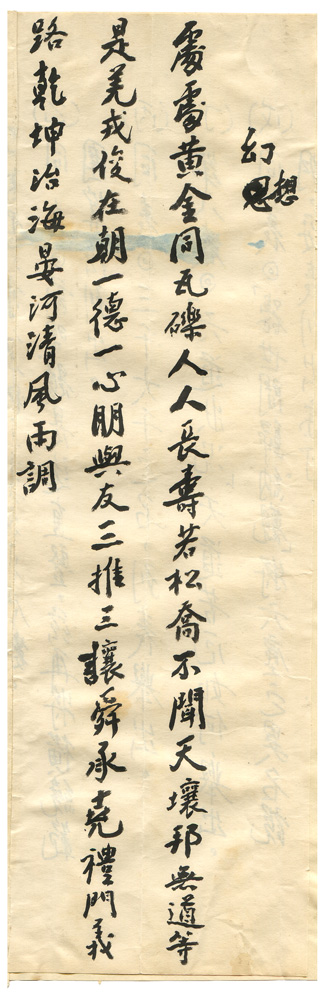 幻想
處處黃金同瓦礫人人長壽若松喬不聞天壤邦無道等
是羌戎俊在朝一德一心朋與友三推三讓舜承堯禮門義
路乾坤治海晏河清風雨調